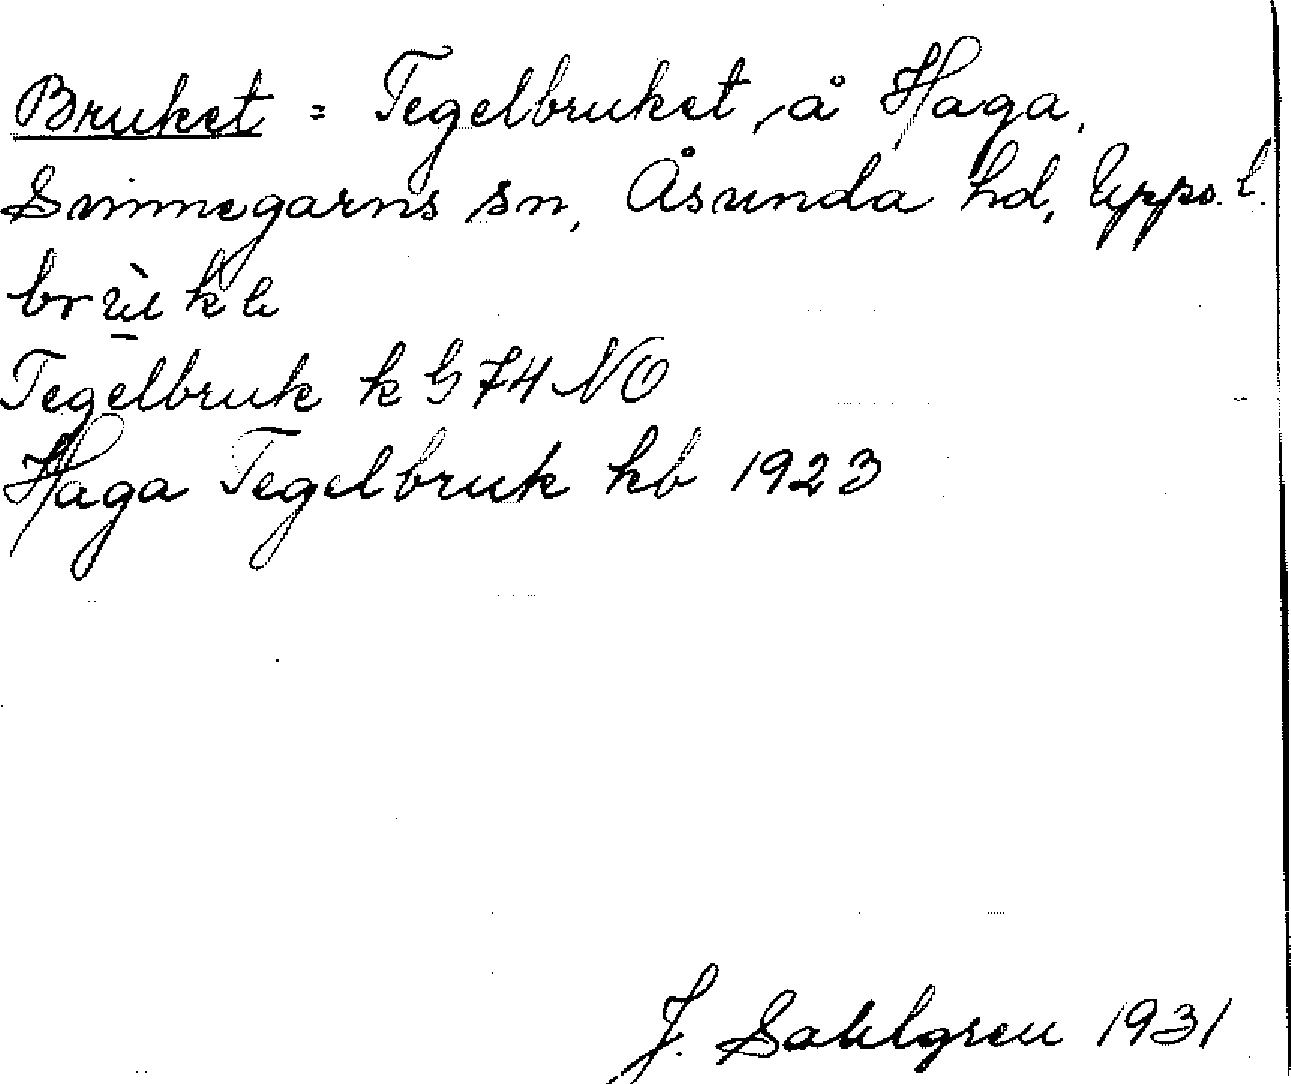 Bruket = Tegelbruket å Haga,
Svinnegarns sn, Åsunda hd, Upps. l.
Tegelbruk k G 74 NO
Haga Tegelbruk kb 1923
J. Sahlgren 1931